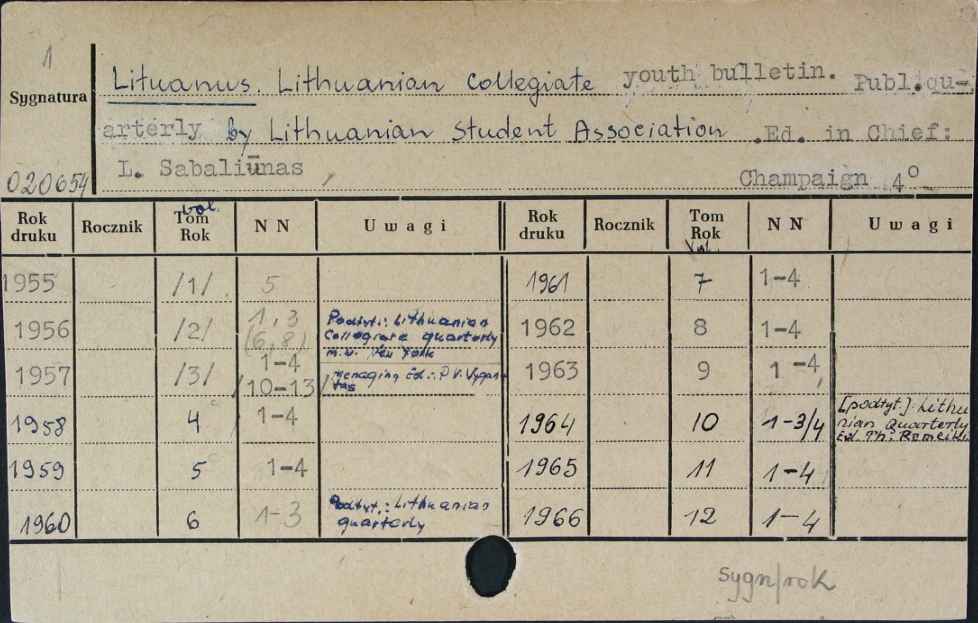 1
Lituanus. Lithuanian Collegiate youth bulletin. Publ.qu-
Sygnatura
arterly by Lithuanian Student Association .Ed. in Chief:
L. Sabaliūnas
020654 Champaign 4°
Rok druku Rocznik Tom vol. Rok NN Uwagi Rok druku Rocznik Tom Rok Vol. NN Uwagi
1955 /1/ 5 1961 7 1-4
1956 /2/ 1, 3 (6,8) Podtyt.: Lithuanian Collegiate quarterly m.w. New York 1962 8 1-4
1957 /3/ 1-4 /10-13/ Menaging Ed.: P.V. Vygantas 1963 9 1-4
1958 4 1-4 1964 10 1-3/4 [podtyt.] Lithuanian quarterly Ed.
1959 5 1-4 1965 11 1-4
1960 6 1-3 Podtyt.: Lithuanian quarterly 1966 12 1-4
sygn/rok